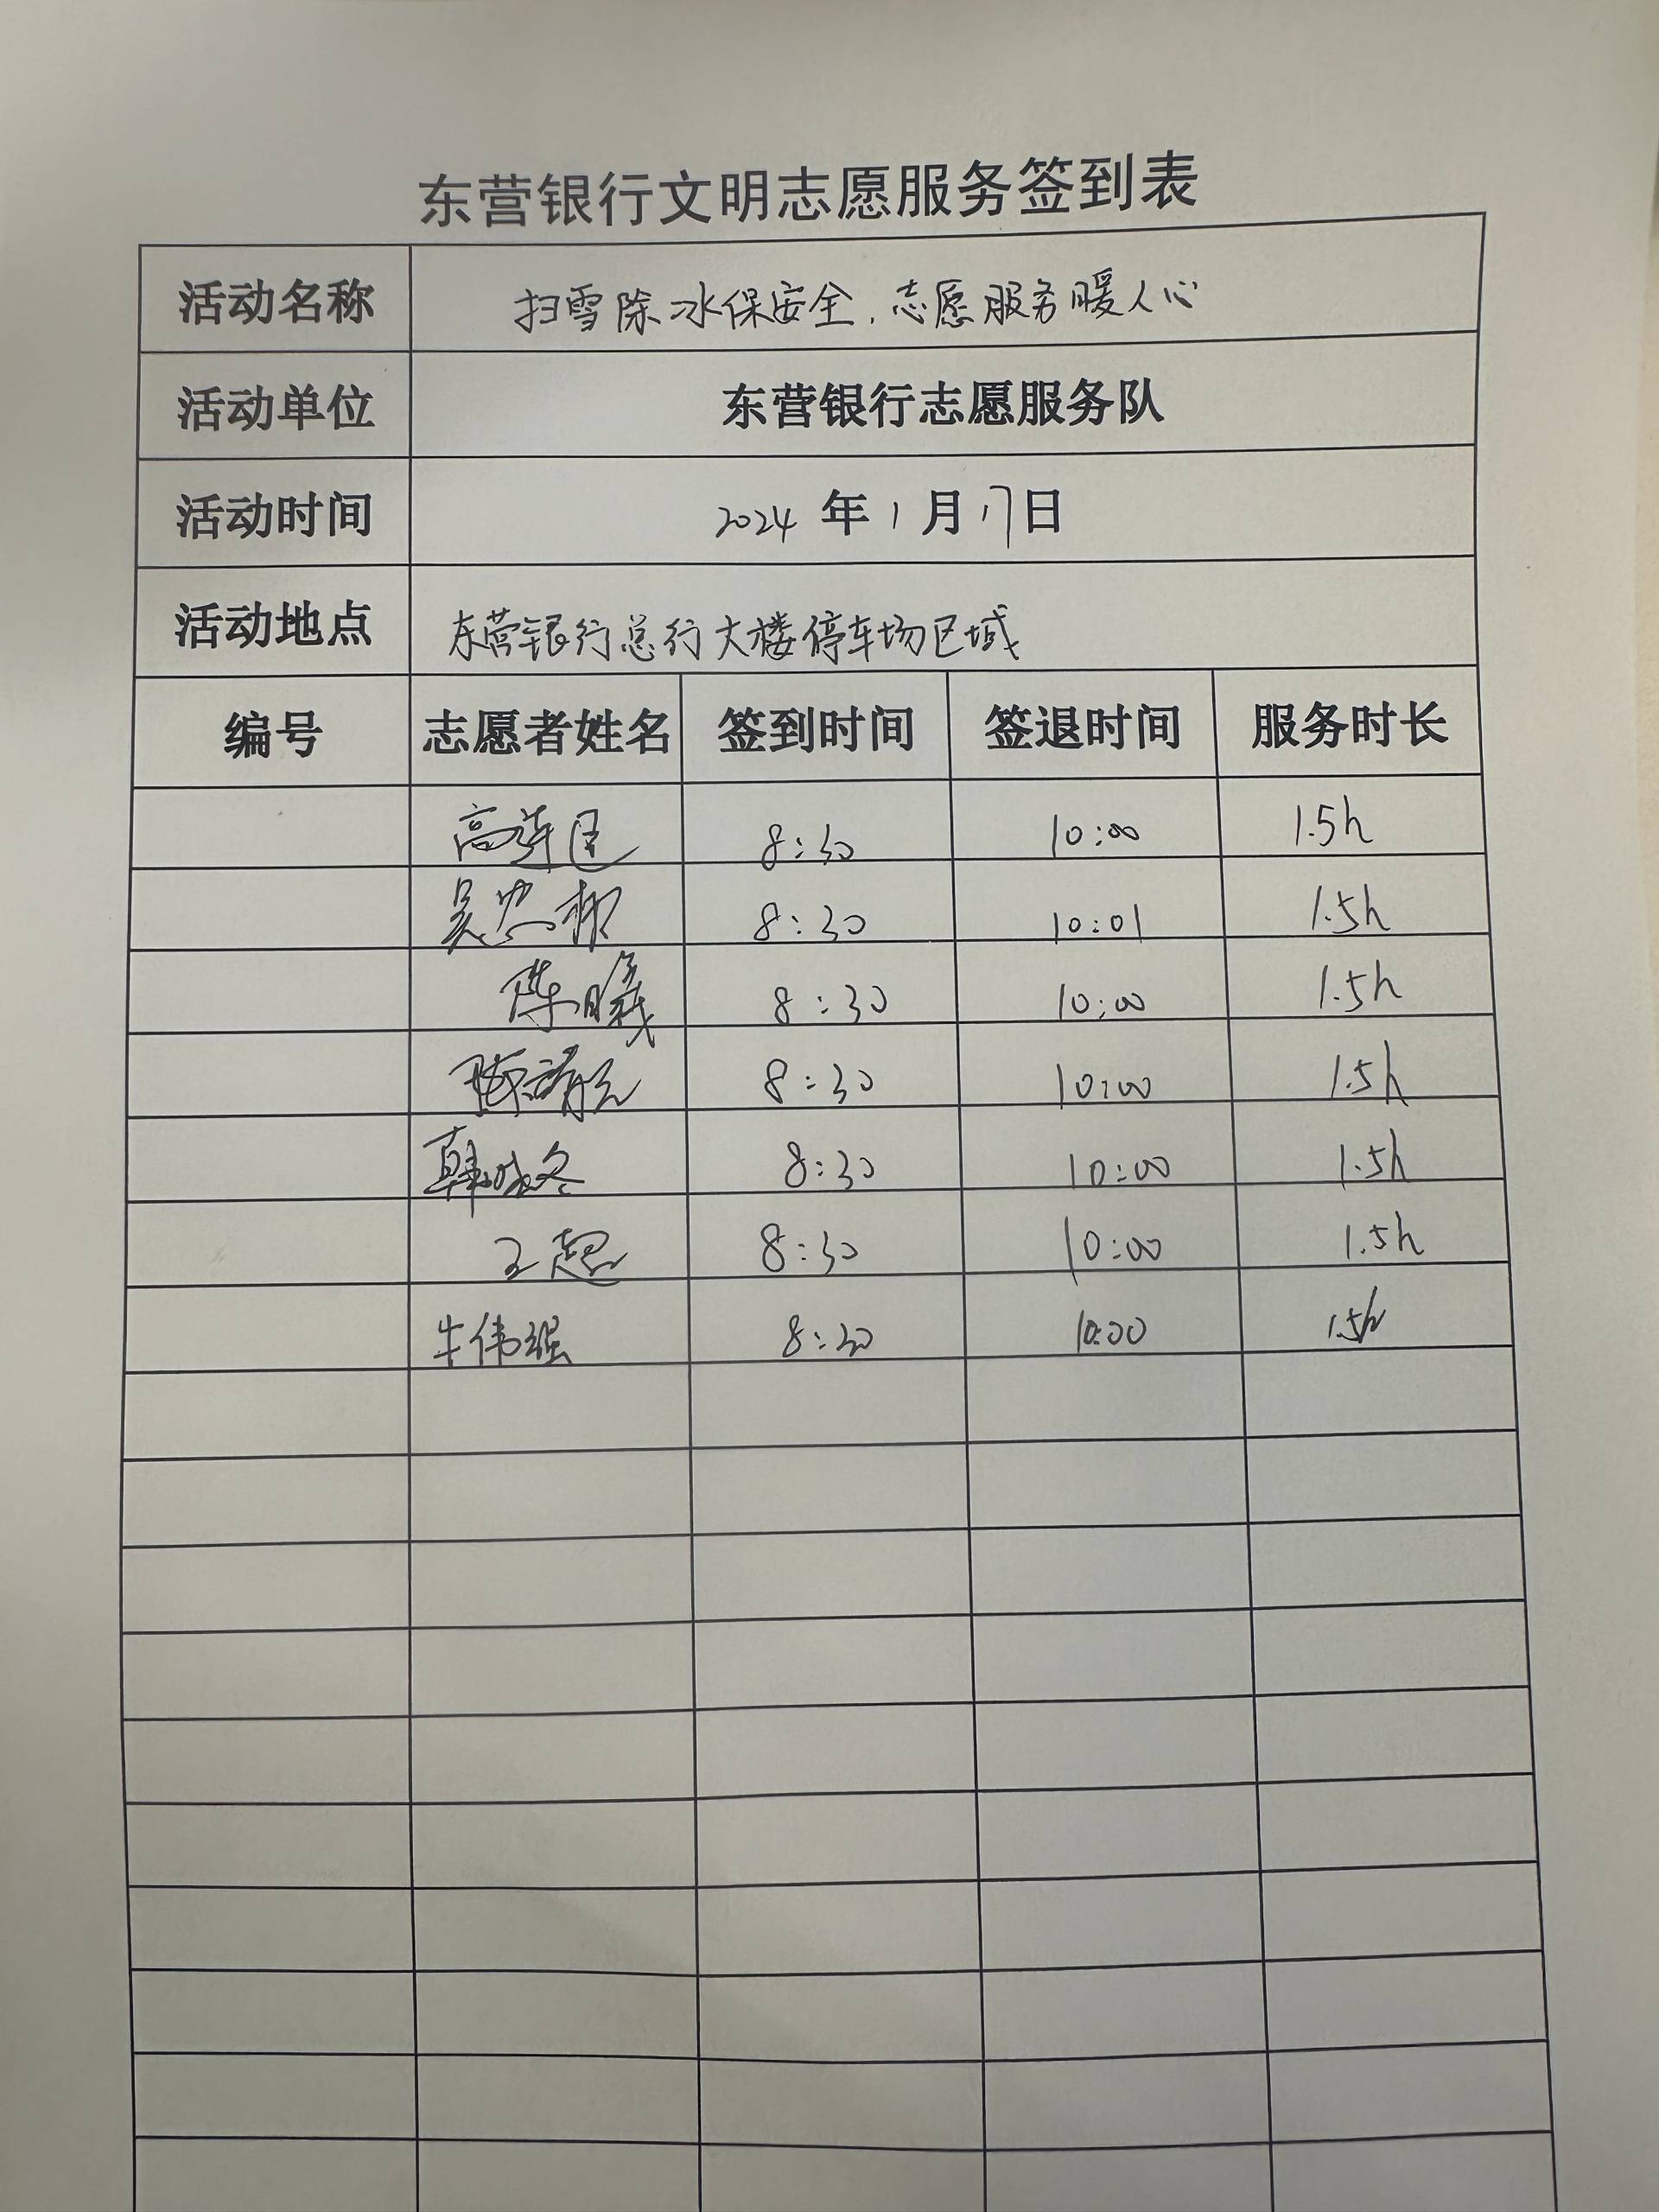 东营银行文明志愿服务签到表
活动名称 扫雪除冰保安全，志愿服务暖人心
活动单位 东营银行志愿服务队
活动时间 2024 年 1 月 17 日
活动地点 东营银行总行大楼停车场区域
编号 志愿者姓名 签到时间 签退时间 服务时长
8:30 10:00 1.5h
8:30 10:01 1.5h
陈曦 8:30 10:00 1.5h
8:30 10:00 1.5h
韩晓冬 8:30 10:00 1.5h
王超 8:30 10:00 1.5h
牛伟强 8:30 10:00 1.5h